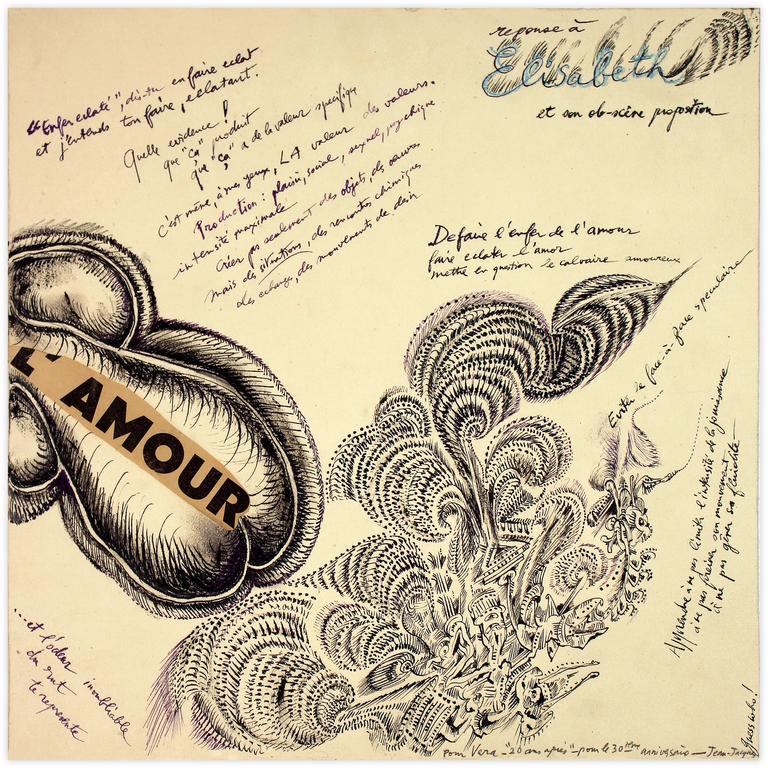 reponse à
Elisabeth
et son ob-scène proposition
"Enfer eclaté", dis-tu en faire eclat
et j'entends ton faire, eclatant.
Quelle evidence !
que "ça" produit
que "ça" a de la valeur spécifique
c'est même, à mes yeux, LA valeur des valeurs.
Production : plaisir, social, sexuel, psychique
intensité maximale
Créer pas seulement des objets, des oeuvres
mais des situations, des rencontres chimiques
des echanges, des mouvements de desir
Defaire l'enfer de l'amour
faire eclater l'amor
mettre en question le calvaire amoureux
L'AMOUR
Eviter le face-à-face speculaire
Apprendre à ne pas limiter l'intensité de la jouissance
à ne pas freiner son mouvement
à ne pas gérer sa fluidité
...et l'odeur inoubliable
du rut
te represente
Pour Vera "20 ans après" pour le 30ème anniversaire — Jean-Jacques
Guess who!